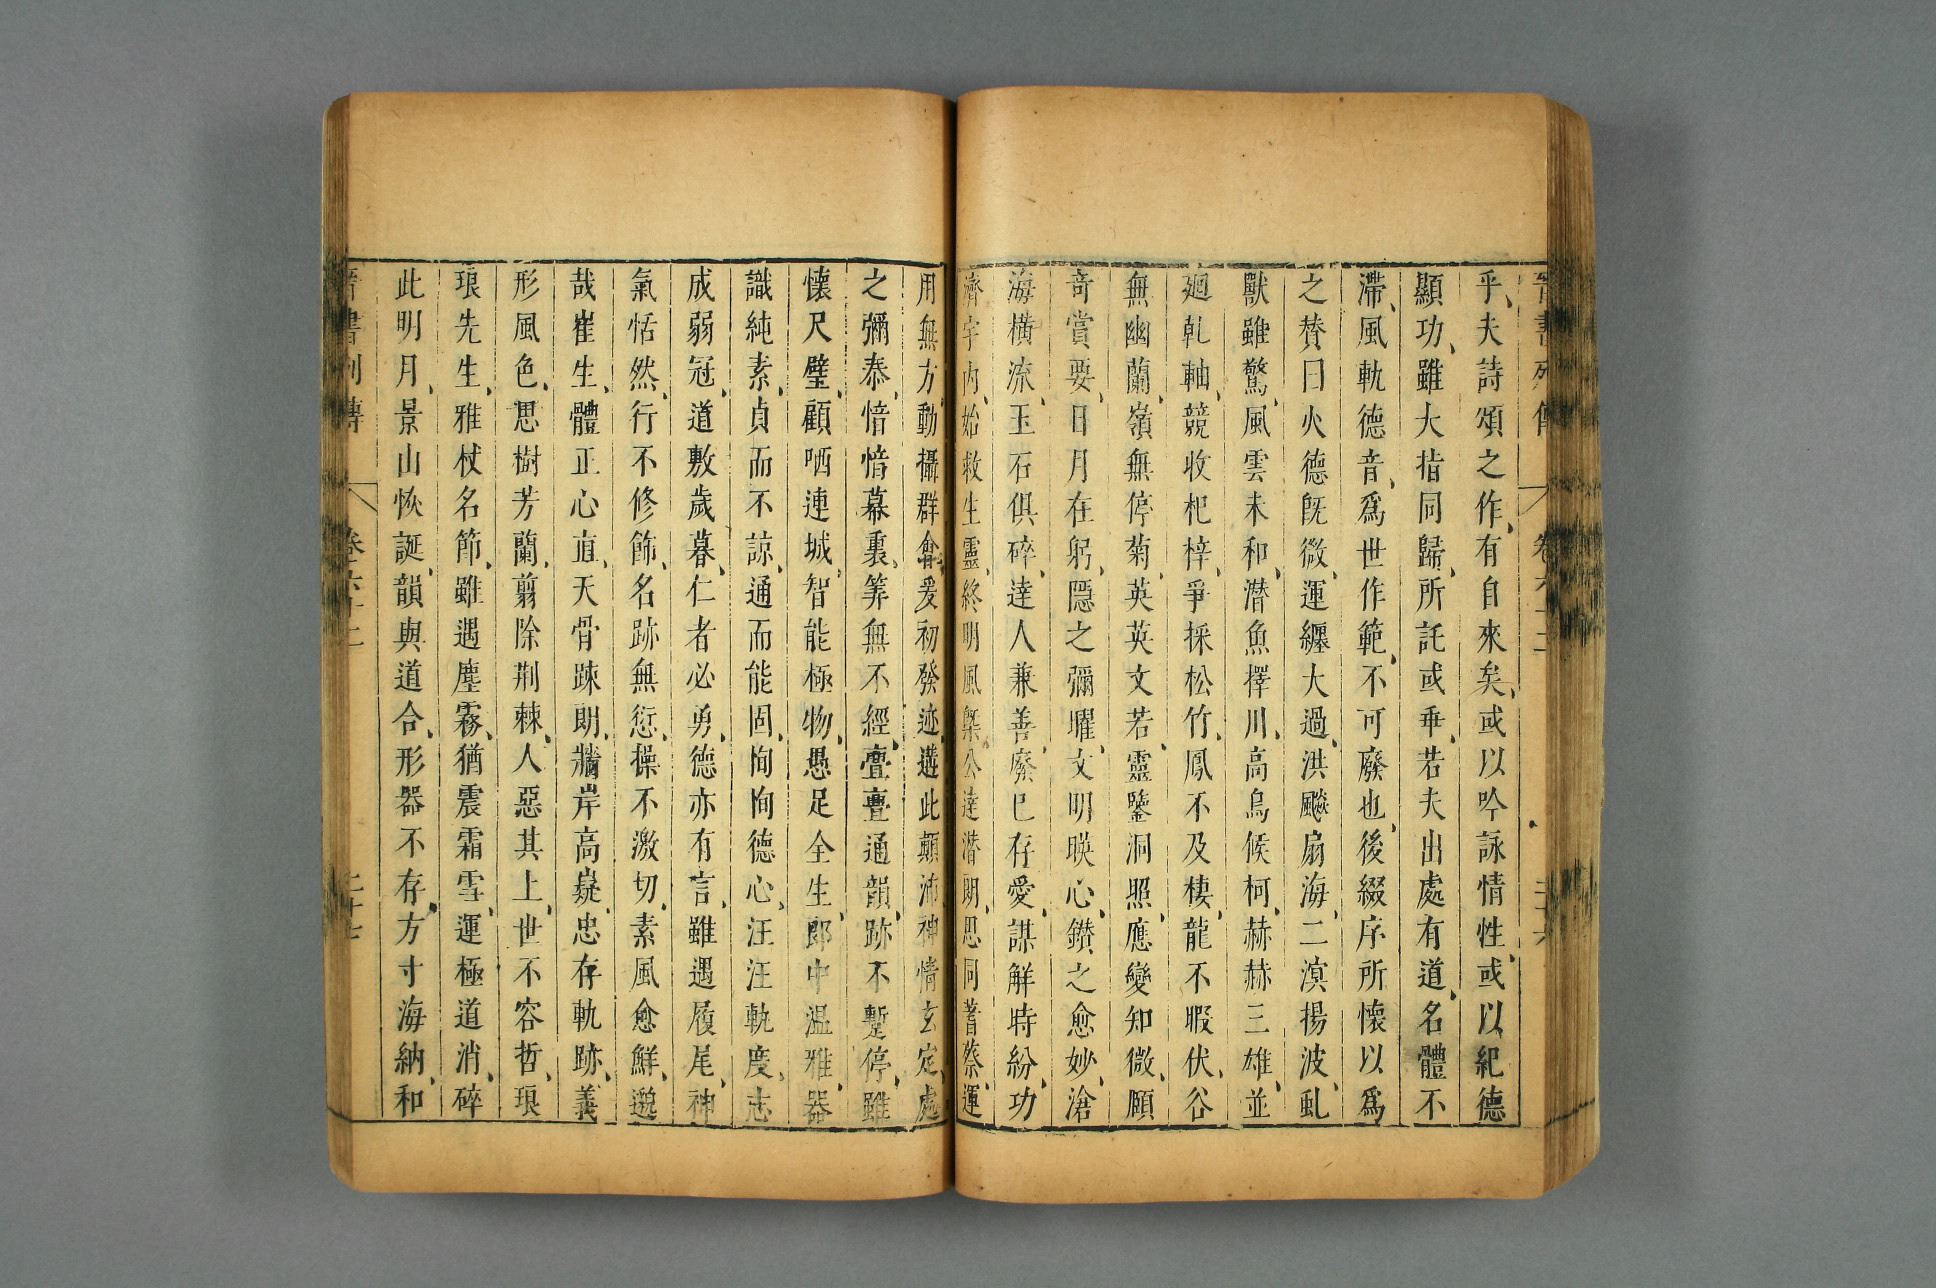 晉書列傳 卷六十二 二十六
乎夫詩頌之作有自來矣或以吟詠情性或以紀德
顯功雖大指同歸所託或乖若夫出處有道名體不
滯風軌德音爲世作範不可廢也後綴序所懷以爲
之贊曰火德旣微運纒大過洪飈扇海二溟揚波虬
獸雖驚風雲未和潛魚擇川高鳥候柯赫赫三雄並
廻乹軸競收杞梓爭採松竹鳳不及棲龍不暇伏谷
無幽蘭嶺無停菊英英文若靈鑒洞照應變知微頤
奇賞要日月在躬隱之彌曜文明暎心鑚之愈妙滄
海橫流玉石俱碎達人兼善廢已存愛謀解時紛功
濟宇內始救生靈終明風槩公達潛朗思同蓍蔡運
用無方動攝群會爰初發迹遘此顛沛神情玄定處
之彌泰愔愔幕裏筭無不經亹亹通韻跡不蹔停雖
懷尺璧顧哂連城智能極物愚足全生郎中温雅器
識純素貞而不諒通而能固恂恂德心汪汪軌度志
成弱冠道敷歲暮仁者必勇德亦有言雖遇履尾神
氣恬然行不修飾名跡無愆操不激切素風愈鮮邈
哉崔生體正心直天骨踈朗牆岸高嶷忠存軌跡義
形風色思樹芳蘭翦除荆棘人惡其上世不容哲琅
琅先生雅杖名節雖遇塵霧猶震霜雪運極道消碎
此明月景山恢誕韻與道合形器不存方寸海納和
晉書列傳 卷六十二 二十七